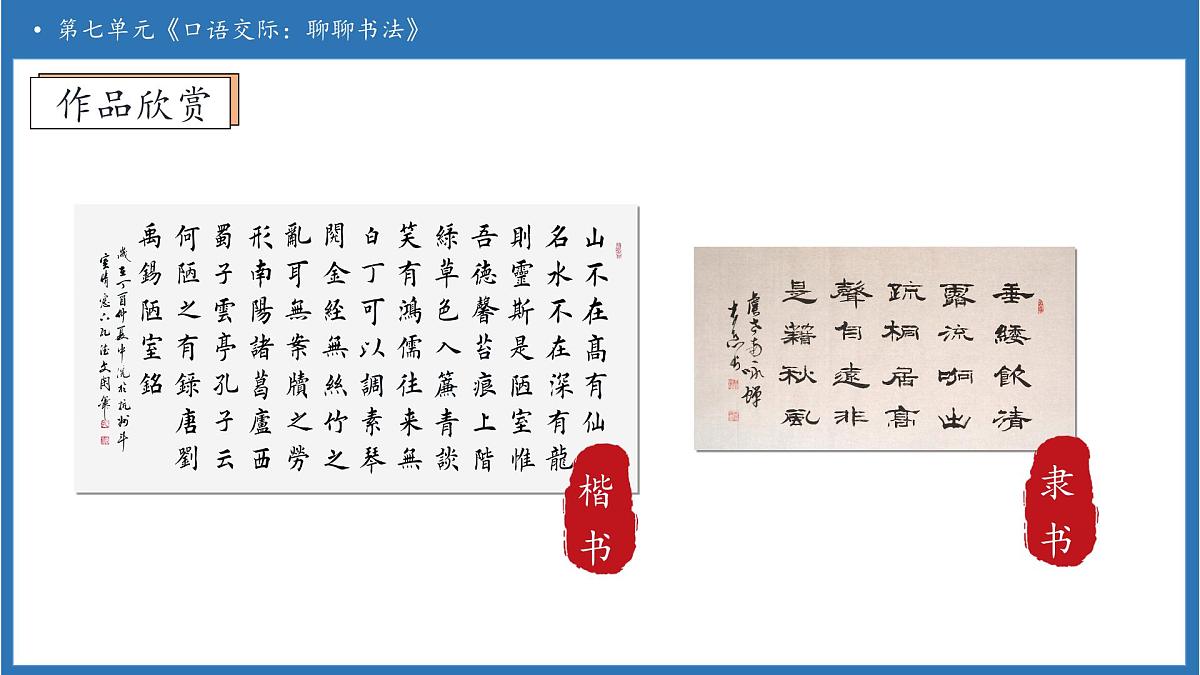 • 第七单元《口语交际：聊聊书法》
作品欣赏
山不在髙有仙
名水不在深有龍
則靈斯是陋室惟
吾德馨苔痕上階
緑草色入簾青談
笑有鴻儒往来無
白丁可以調素琴
閲金経無絲竹之
亂耳無案牘之勞
形南陽諸葛廬西
蜀子雲亭孔子云
何陋之有録唐劉
禹錫陋室銘
歲在丁酉仲夏中浣於杭州斗
楷书
垂緌飲清
露流响出
疏桐居高
聲自遠非
是藉秋風
虞世南咏蝉
隶书